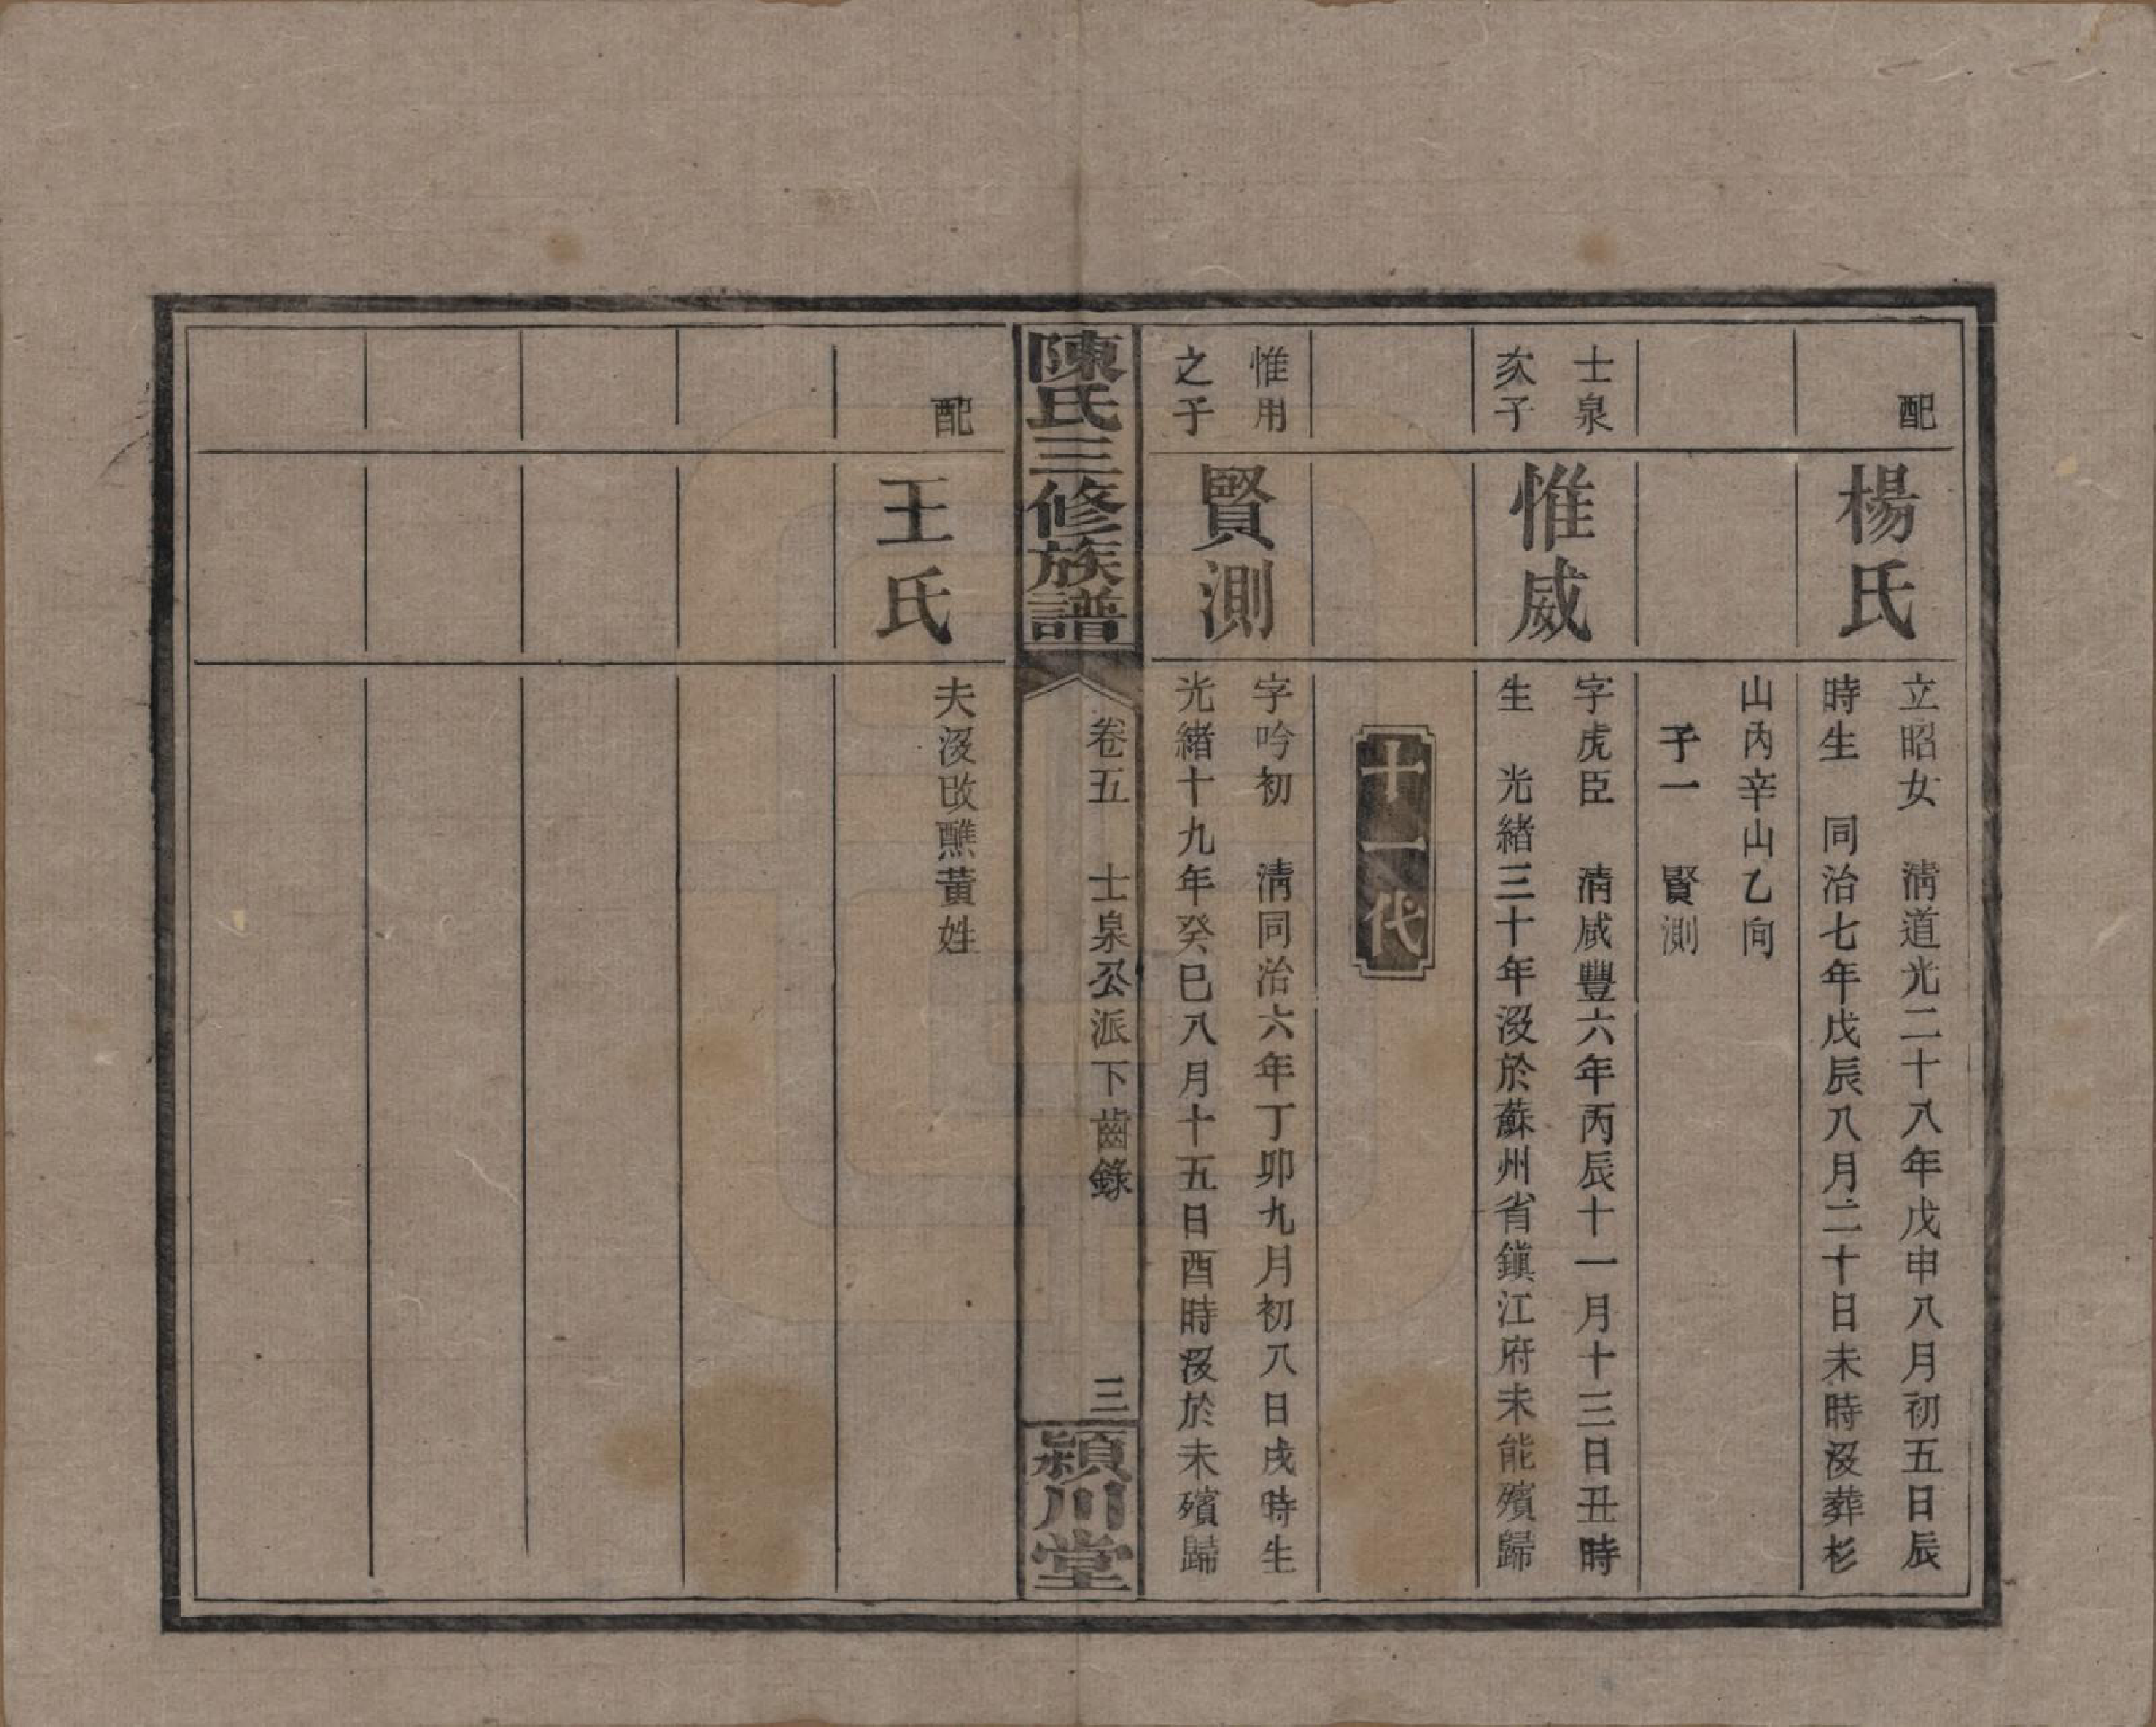 配
楊氏
立昭女　清道光二十八年戊申八月初五日辰
時生　同治七年戊辰八月二十日未時沒葬杉
山內辛山乙向
子一　賢測
士泉
次子
惟威
字虎臣　清咸豐六年丙辰十一月十三日丑時
生　光緒三十年沒於蘇州省鎭江府未能殯歸
十一代
惟用
之子
賢測
字吟初　清同治六年丁卯九月初八日戌時生
光緒十九年癸巳八月十五日酉時沒於未殯歸
陳氏三修族譜
卷五　士泉公派下齒錄
三
潁川堂
配
王氏
夫沒改醮黃姓